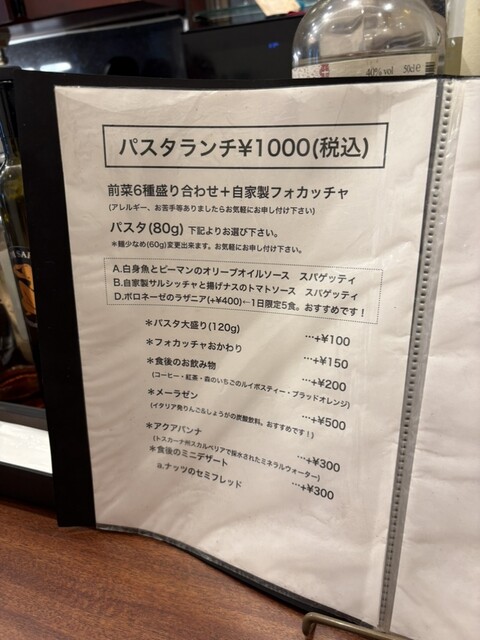 40% vol 50cl e
パスタランチ¥1000(税込)
前菜6種盛り合わせ+自家製フォカッチャ
(アレルギー、お苦手等ありましたらお気軽にお申し付け下さい)
パスタ(80g) 下記よりお選び下さい。
*麺少なめ(60g)変更出来ます。お気軽にお申し付け下さい。
A.白身魚とピーマンのオリーブオイルソース スパゲッティ
B.自家製サルシッチャと揚げナスのトマトソース スパゲッティ
D.ボロネーゼのラザニア(+¥400)←1日限定5食。おすすめです!
*パスタ大盛り(120g) …+¥100
*フォカッチャおかわり …+¥150
*食後のお飲み物 …+¥200
(コーヒー・紅茶・森のいちごのルイボスティー・ブラッドオレンジ)
*メーラゼン …+¥500
(イタリア発りんご&しょうがの炭酸飲料。おすすめです!)
*アクアパンナ …+¥300
(トスカーナ州スカルペリアで採水されたミネラルウォーター)
*食後のミニデザート …+¥300
a.ナッツのセミフレッド